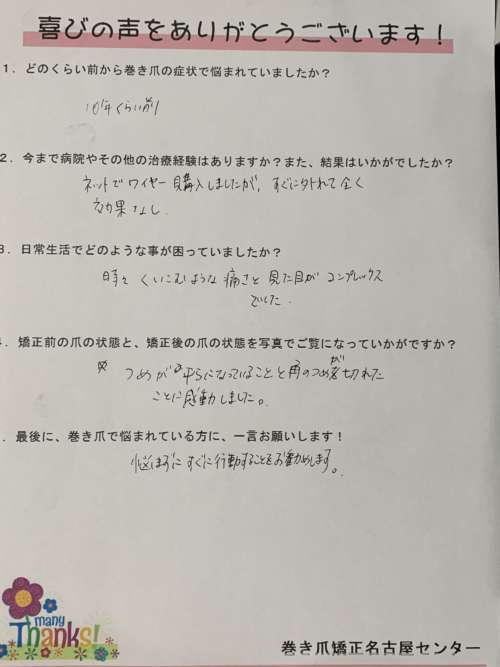 喜びの声をありがとうございます！
1．どのくらい前から巻き爪の症状で悩まれていましたか？
10年くらい前
2．今まで病院やその他の治療経験はありますか？また、結果はいかがでしたか？
ネットでワイヤー購入しましたが、すぐに外れて全く
効果なし。
3．日常生活でどのような事が困っていましたか？
時々くいこむような痛さと見た目がコンプレックス
でした。
4．矯正前の爪の状態と、矯正後の爪の状態を写真でご覧になっていかがですか？
つめが平らになっていることと角のつめが切れた
ことに感動しました。
．最後に、巻き爪で悩まれている方に、一言お願いします！
悩まずにすぐに行動することをお勧めします。
many
Thanks!
巻き爪矯正名古屋センター